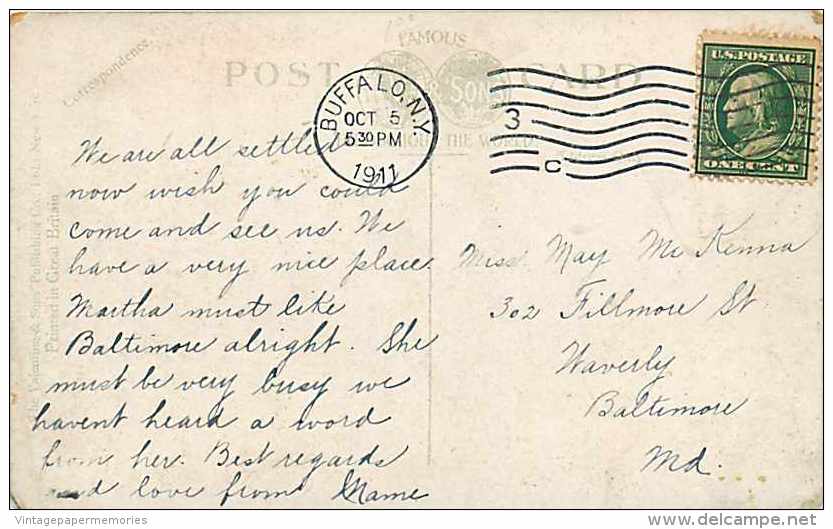 Correspondence.
FAMOUS
POST CARD
SONS
THE WORLD
BUFFALO, N.Y.
OCT 5
5 30 PM
1911
3
C
U.S. POSTAGE
ONE CENT
We are all settled
now wish you could
come and see us. We
have a very nice place.
Martha must like
Baltimore alright. She
must be very busy we
havent heard a word
from her. Best regards
and love from Mame
Miss. May Mc Kenna
302 Fillmore St
Waverly
Baltimore
Md.
Valentine & Sons Publishing Co., Ltd.
Printed in Great Britain
Vintagepapermemories
delcampe.net